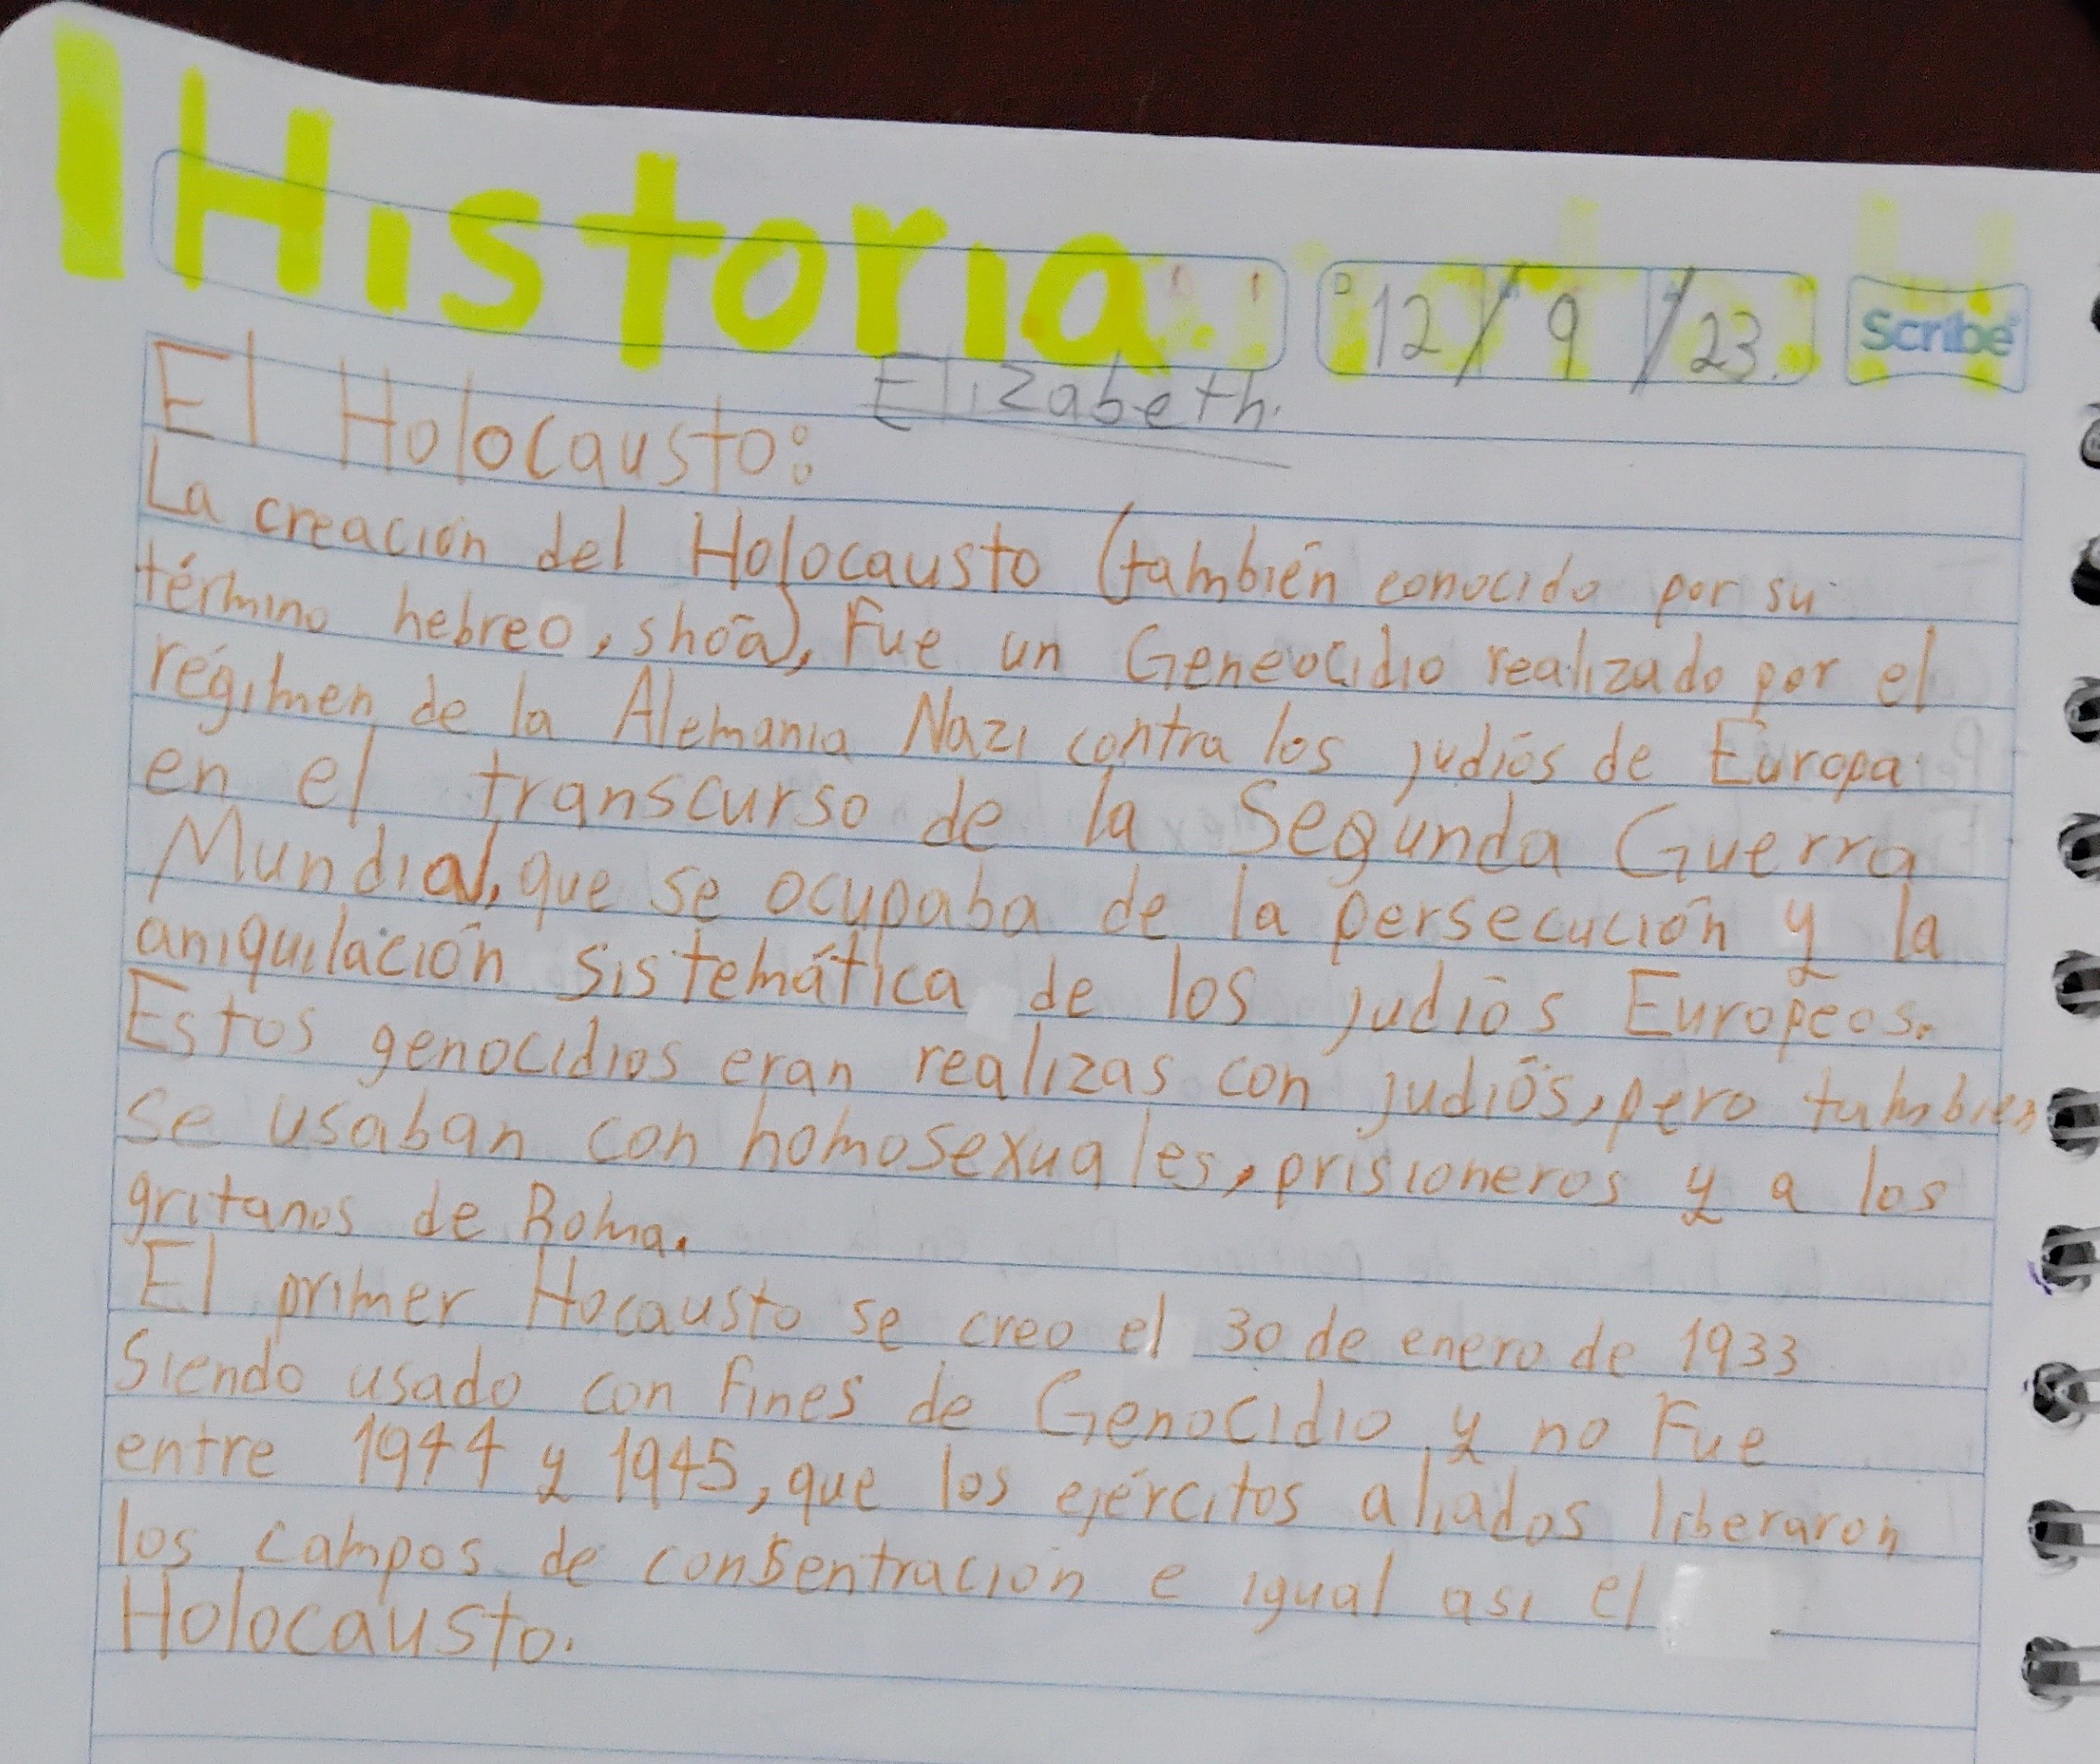 Historia
12/9/23
Scribe
Elizabeth.
El Holocausto:
La creación del Holocausto (también conocido por su
término hebreo, shoá), Fue un Geneocidio realizado por el
régimen de la Alemania Nazi contra los judíos de Europa
en el transcurso de la Segunda Guerra
Mundial, que se ocupaba de la persecución y la
aniquilación sistemática de los judíos Europeos.
Estos genocidios eran realizas con judíos, pero tambien
se usaban con homosexuales, prisioneros y a los
gritanos de Roma.
El primer Hocausto se creo el 30 de enero de 1933
Siendo usado con Fines de Genocidio y no Fue
entre 1944 y 1945, que los ejércitos aliados liberaron
los campos de consentración e igual asi el
Holocausto.